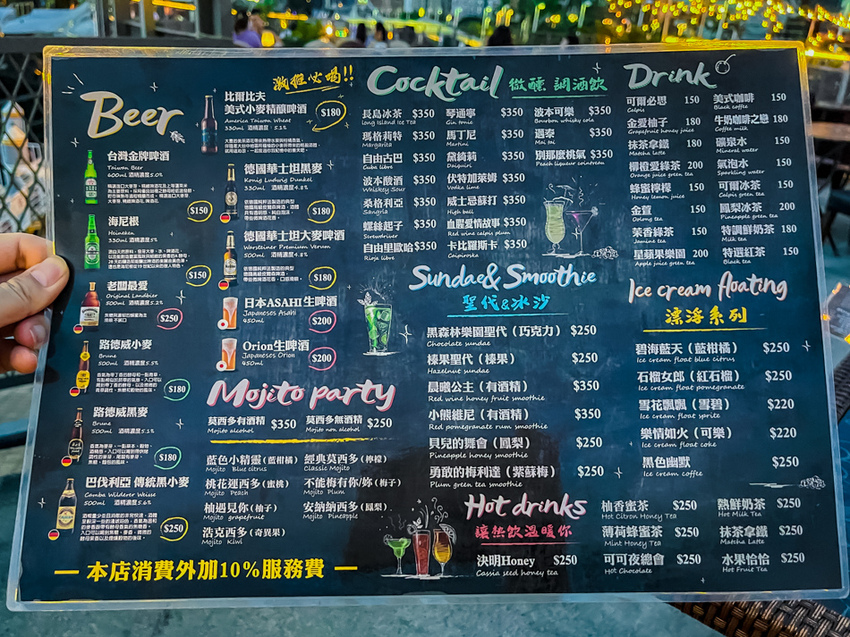 Beer
台灣金牌啤酒
Taiwan Beer
600ml 酒精濃度5.0%
$150
海尼根
Heineken
330ml 酒精濃度5%
$150
老闆最愛
Original Landbier
500ml 酒精濃度5.2%
$250
路德威小麥
Brune
500ml 酒精濃度5.5%
$180
路德威黑麥
Brune
500ml 酒精濃度5.1%
$180
巴伐利亞 傳統黑小麥
Camba Wilderer Weisse
500ml 酒精濃度5.6%
$250
激推必喝!!
比爾比夫
美式小麥精釀啤酒
America Taiwan Wheat
330ml 酒精濃度: 5.1%
$180
德國華士坦黑麥
Konig Ludwig Dunkel
330ml 酒精濃度4.8%
$180
德國華士坦大麥啤酒
Warsteiner Premium Verum
500ml 酒精濃度4.8%
$180
日本ASAHI生啤酒
Japaneses Asahi
450ml
$200
Orion生啤酒
Japaneses Orion
450ml
$200
Mojito party
莫西多有酒精 $350 莫西多無酒精 $250
Mojito alcohol Mojito non alcohol
藍色小精靈(藍柑橘) 經典莫西多(檸檬)
Mojito Blue citrus Classic Mojito
桃花運西多(蜜桃) 不能梅有你/妳(梅子)
Mojito Peach Mojito Plum
柚遇見你(柚子) 安納納西多(鳳梨)
Mojito grapefruit Mojito Pineapple
浩克西多(奇異果)
Mojito Kiwi
— 本店消費外加10%服務費 —
Cocktail 微醺 調酒飲
長島冰茶 $350 琴通寧 $350 波本可樂 $350
Long Island Ice Tea Gin tonic Bourbon whisky cola
瑪格莉特 $350 馬丁尼 $350 邁泰 $350
Margarita Martini Mai tai
自由古巴 $350 黛綺莉 $350 別那麼桃氣 $350
Cuba libre Daiquiri Peach liqueur cointreau
波本酸酒 $350 伏特加萊姆 $350
Whiskey Sour Vodka lime
桑格利亞 $350 威士忌蘇打 $350
Sangria High ball
螺絲起子 $350 血腥愛情故事 $350
Screwdriver Red wine calpis plum
自由里歐哈 $350 卡比羅斯卡 $350
Rioja libre Caipiroska
Sundae & Smoothie
聖代&冰沙
黑森林樂園聖代(巧克力) $250
Chocolate sundae
榛果聖代(榛果) $250
Hazelnut sundae
晨曦公主(有酒精) $250
Red wine honey fruit smoothie
小熊維尼(有酒精) $250
Red pomegranate rum smoothie
貝兒的舞會(鳳梨) $250
Pineapple honey smoothie
勇敢的梅利達(紫蘇梅) $250
Plum green tea smoothie
Hot drinks
讓熱飲溫暖你
決明Honey $250
Cassia seed honey tea
柚香蜜茶 $250 熱鮮奶茶 $250
Hot Citron Honey Tea Hot Milk Tea
薄荷蜂蜜茶 $250 抹茶拿鐵 $250
Mint Honey Tea Matcha Latte
可可夜總會 $250 水果恰恰 $250
Hot Chocolate Hot Fruit Tea
Drink
可爾必思 150 美式咖啡 150
Calpis Black coffee
金爱柚子 180 牛奶咖啡之戀 180
Grapefruit honey juice Coffee milk
抹茶拿鐵 180 礦泉水 150
Matcha latte Mineral water
柳橙愛綠茶 200 氣泡水 150
Orange juice green tea Sparkling water
蜂蜜檸檬 150 可爾冰茶 150
Honey lemon juice Calpis green tea
金萱 150 鳳梨冰茶 200
Oolong tea Pineapple green tea
茉香綠茶 150 特調鮮奶茶 180
Jasmine tea Milk tea
星蘋果樂園 200 特選紅茶 150
Apple juice green tea Black tea
Ice cream floating
漂浮系列
碧海藍天(藍柑橘) $250
Ice cream float blue citrus
石榴女郎(紅石榴) $250
Ice cream float pomegranate
雪花飄飄(雪碧) $220
Ice cream float sprite
樂情如火(可樂) $220
Ice cream float coke
黑色幽默 $250
Ice cream coffee